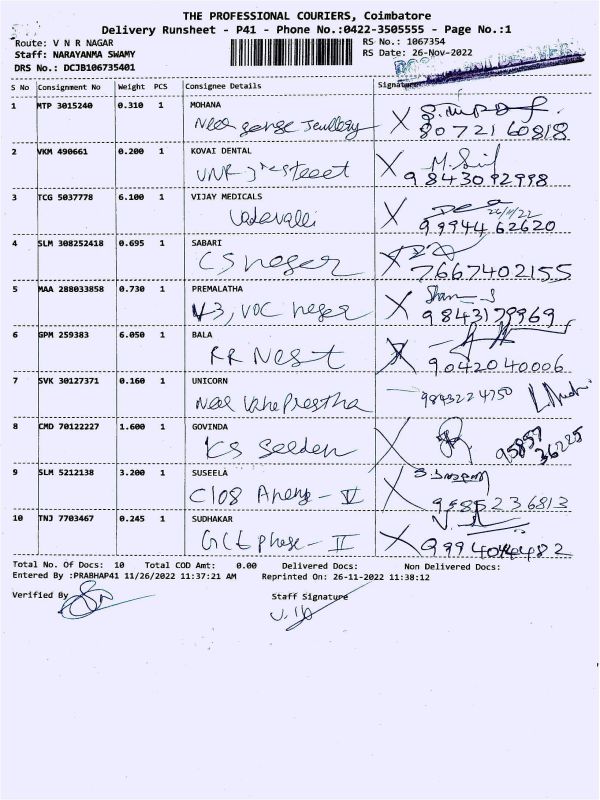 THE PROFESSIONAL COURIERS, Coimbatore
Delivery Runsheet - P41 - Phone No.:0422-3505555 - Page No.:1
Route: V N R NAGAR
RS No.: 1067354
Staff: NARAYANMA SWAMY
RS Date: 26-Nov-2022
DRS No.: DCJB106735401
S No Consignment No Weight PCS Consignee Details Signature
1 MTP 3015240 0.310 1 MOHANA
Near Jewllery X
80721 60818
2 VKM 490661 0.200 1 KOVAI DENTAL
VNR street X
98430 92998
3 TCG 5037778 6.100 1 VIJAY MEDICALS
Vadavalli X 26/11/22
99944 62620
4 SLM 308252418 0.695 1 SABARI
CS nager X
7667402155
5 MAA 288033858 0.730 1 PREMALATHA
V3, VOC nager X
9843179969
6 GPM 259383 6.050 1 BALA
RR Nest X
90420 40006
7 SVK 30127371 0.160 1 UNICORN
Near
9843224750
8 CMD 70122227 1.600 1 GOVINDA
KS X
95857
36225
9 SLM 5212138 3.200 1 SUSEELA
C108 - V X
95852 36813
10 TNJ 7703467 0.245 1 SUDHAKAR
GCT phase - II X
Total No. Of Docs: 10 Total COD Amt: 0.00 Delivered Docs: Non Delivered Docs:
Entered By :PRABHAP41 11/26/2022 11:37:21 AM Reprinted On: 26-11-2022 11:38:12
Verified By
Staff Signature